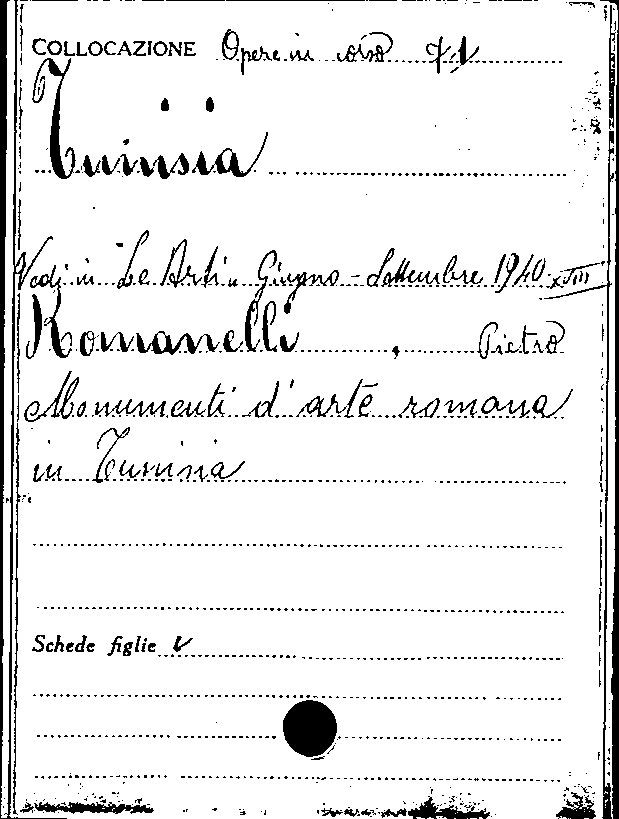 COLLOCAZIONE Opere in corso 71
Tunisia
Vedi in "Le Arti" Giugno - Settembre 1940 XVIII
Romanelli, Pietro
Monumenti d'arte romana
in Tunisia
Schede figlie V